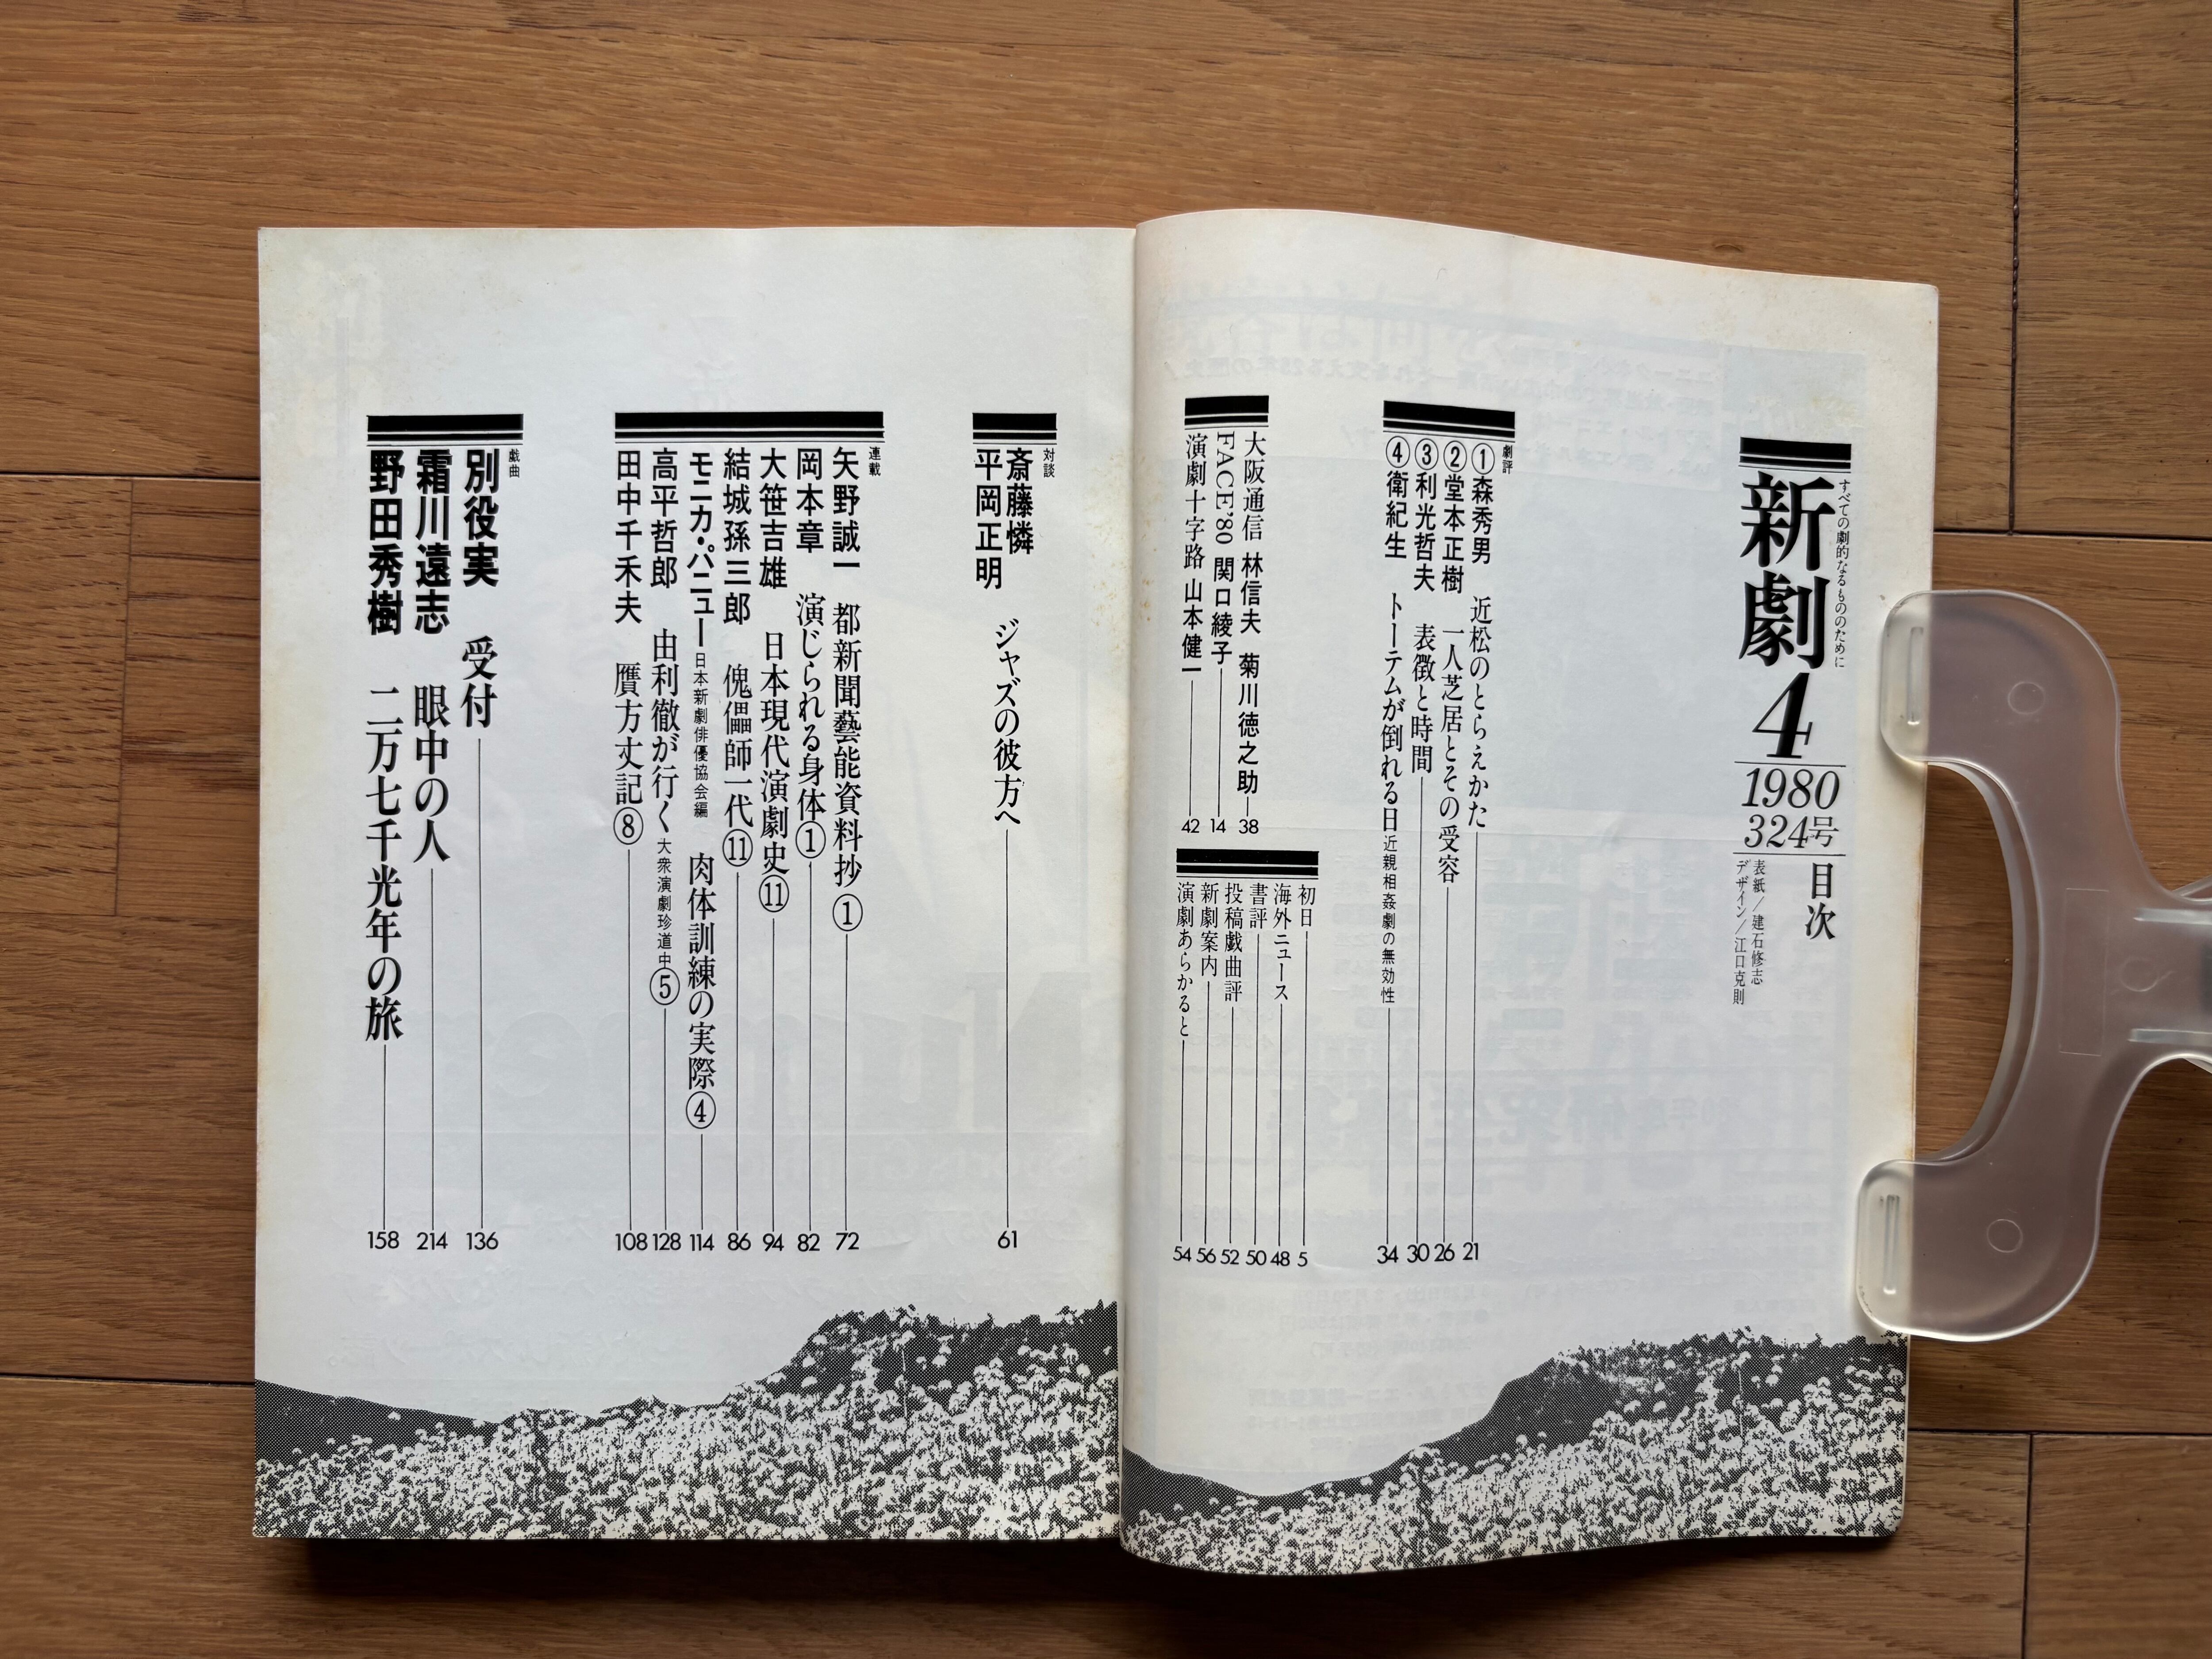 すべての劇的なるもののために
新劇4
1980
324号
目次
表紙/建石修志
デザイン/江口克則
劇評
①森秀男 近松のとらえかた 21
②堂本正樹 一人芝居とその受容 26
③利光哲夫 表徴と時間 30
④衛紀生 トーテムが倒れる日 近親相姦劇の無効性 34
大阪通信 林信夫 菊川徳之助 38
FACE'80 関口綾子 14
演劇十字路 山本健一 42
初日 5
海外ニュース 48
書評 50
投稿戯曲評 52
新劇案内 56
演劇あらかると 54
対談
斎藤憐
平岡正明
ジャズの彼方へ 61
連載
矢野誠一 都新聞藝能資料抄① 72
岡本章 演じられる身体① 82
大笹吉雄 日本現代演劇史⑪ 94
結城孫三郎 傀儡師一代⑪ 86
モニカ・パニュー 日本新劇俳優協会編 肉体訓練の実際④ 114
高平哲郎 由利徹が行く 大衆演劇珍道中⑤ 128
田中千禾夫 贋方丈記⑧ 108
戯曲
別役実 受付 136
霜川遠志 眼中の人 214
野田秀樹 二万七千光年の旅 158